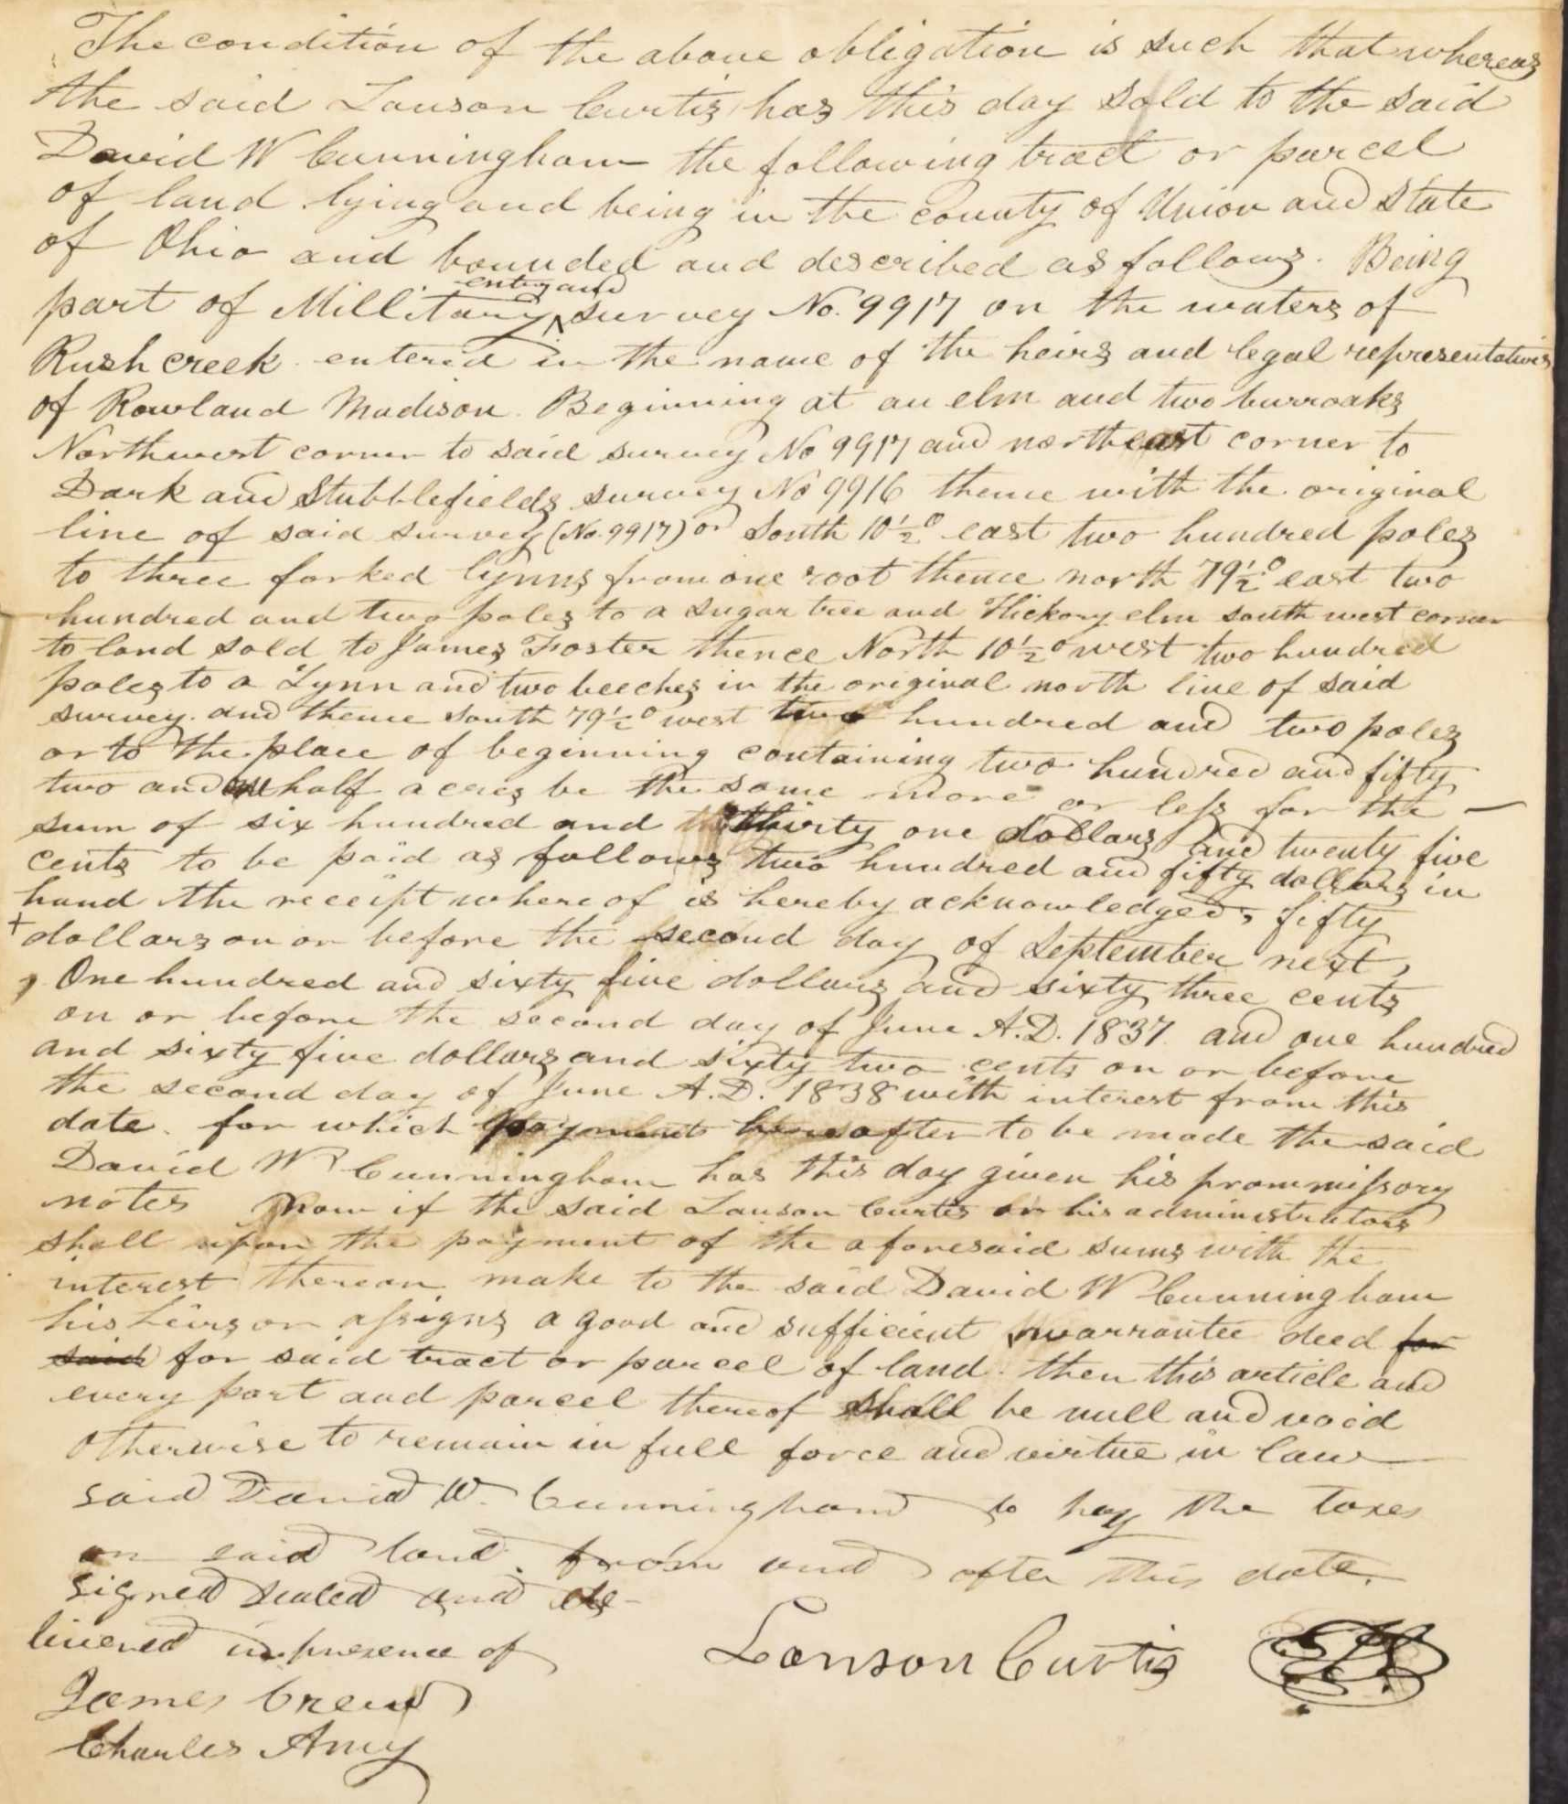 The condition of the above obligation is such that whereas
the said Lanson Curtis has this day sold to the said
David W Cunningham the following tract or parcel
of land lying and being in the county of Union and State
of Ohio and bounded and described as follows. Being
entry and
part of Millitary ^ survey No. 9917 on the waters of
Rush creek entered in the name of the heirs and legal representatives
of Rowland Madison. Beginning at an elm and two burroaks
Northwest corner to said survey No 9917 and northeast corner to
Dark and Stubblefields survey No 9916 thence with the original
line of said survey (No. 9917) or South 10½° east two hundred poles
to three forked lynns from one root thence north 79½° east two
hundred and two poles to a sugar tree and Hickory elm south west corner
to land sold to James Foster thence North 10½° west two hundred
poles to a Lynn and two beeches in the original north line of said
survey. and thence South 79½° west two hundred and two poles
or to the place of beginning containing two hundred and fifty
two and half acres be the same more or less for the —
sum of six hundred and thirty one dollars and twenty five
cents to be paid as follows two hundred and fifty dollars in
hand the receipt whereof is hereby acknowledged, fifty
+ dollars on or before the second day of September next,
, One hundred and sixty five dollars and sixty three cents
on or before the second day of June A.D. 1837 and one hundred
and sixty five dollars and sixty two cents on or before
the second day of June A.D. 1838 with interest from this
date. for which payment hereafter to be made the said
David W Cunningham has this day given his prommissory
notes Now if the said Lanson Curtis or his administrators
shall upon the payment of the aforesaid sums with the
interest thereon make to the said David W Cunningham
his heirs or assigns a good and sufficient warrantee deed for
said for said tract or parcel of land. then this article and
every part and parcel thereof shall be null and void
otherwise to remain in full force and virtue in law
said David W. Cunningham to pay the taxes
on said land from and after this date.
signed sealed and de-
livered in presence of
Lanson Curtis
James Crew
Charles Amy